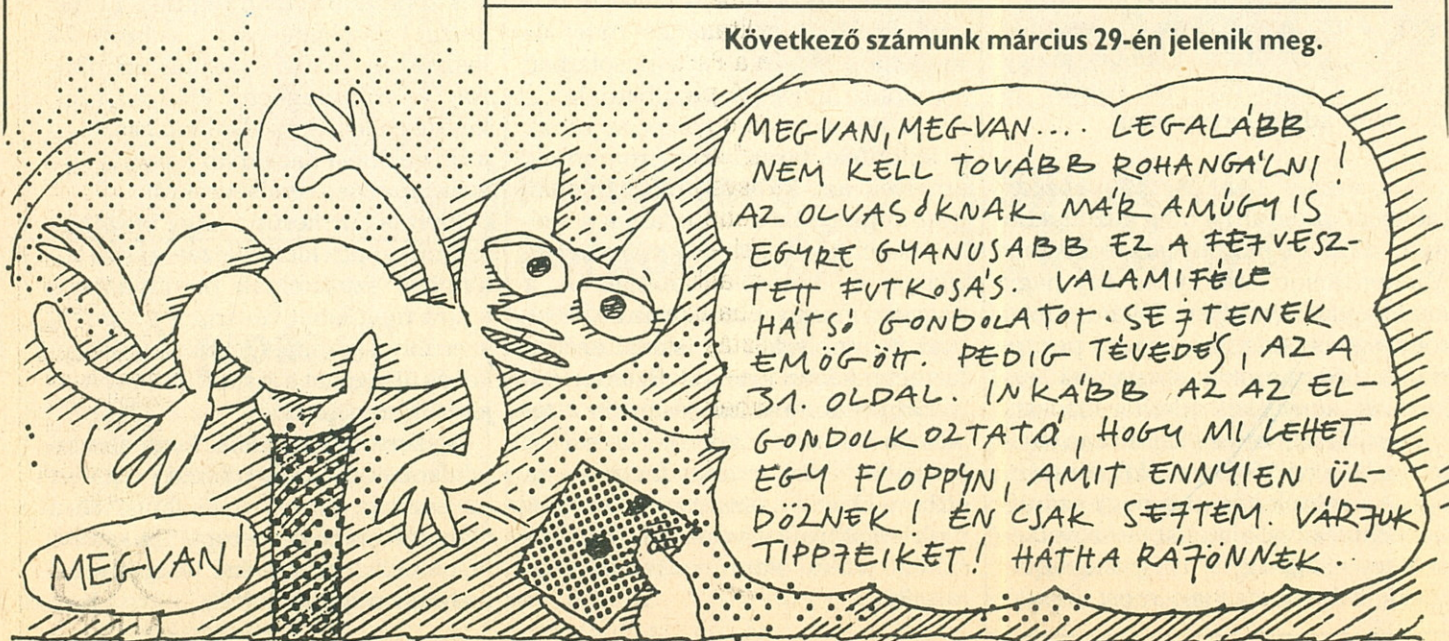 Következő számunk március 29-én jelenik meg.
MEGVAN, MEGVAN.... LEGALÁBB
NEM KELL TOVÁBB ROHANGÁLNI!
AZ OLVASÓKNAK MÁR AMÚGY IS
EGYRE GYANUSABB EZ A FEJVESZ-
TETT FUTKOSÁS. VALAMIFÉLE
HÁTSÓ GONDOLATOT SEJTENEK
EMÖGÖTT. PEDIG TÉVEDÉS, AZ A
31. OLDAL. INKÁBB AZ AZ EL-
GONDOLKOZTATÓ, HOGY MI LEHET
EGY FLOPPYN, AMIT ENNYIEN ÜL-
DÖZNEK! ÉN CSAK SEJTEM. VÁRJUK
TIPPJEIKET! HÁTHA RÁJÖNNEK.
MEGVAN!